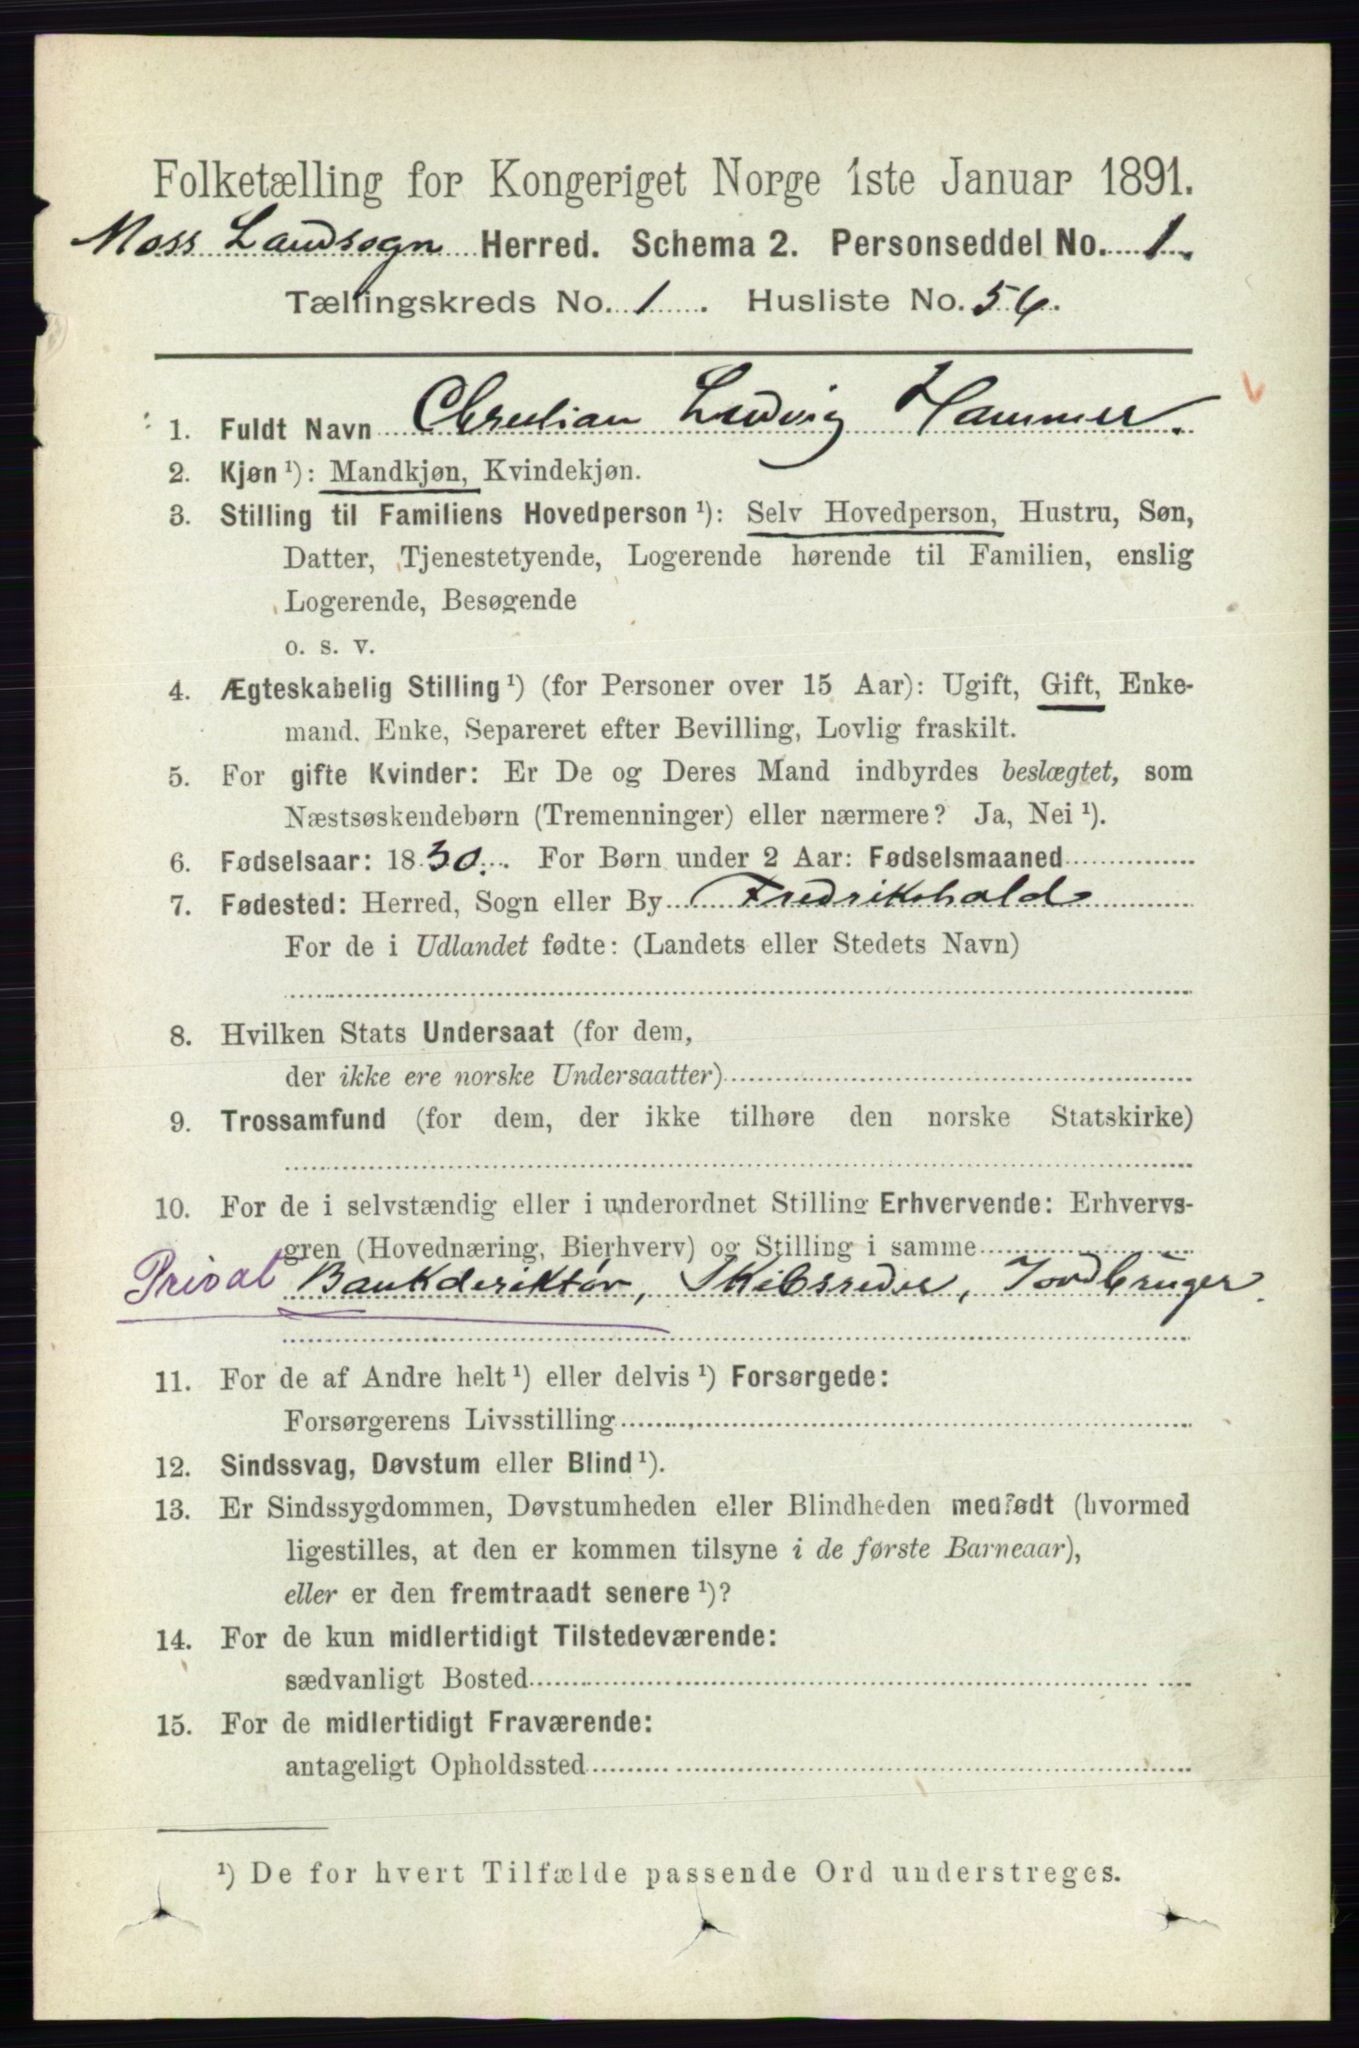 Folketælling for Kongeriget Norge 1ste Januar 1891.
Moss Landsogn Herred. Schema 2. Personseddel No. 1.
Tællingskreds No. 1. Husliste No. 56.
1. Fuldt Navn Christian Ludvig Hammer.
2. Kjøn ¹): Mandkjøn, Kvindekjøn.
3. Stilling til Familiens Hovedperson ¹): Selv Hovedperson, Hustru, Søn,
Datter, Tjenestetyende, Logerende hørende til Familien, enslig
Logerende, Besøgende
o. s. v.
4. Ægteskabelig Stilling ¹) (for Personer over 15 Aar): Ugift, Gift, Enke-
mand, Enke, Separeret efter Bevilling, Lovlig fraskilt.
5. For gifte Kvinder: Er De og Deres Mand indbyrdes beslægtet, som
Næstsøskendebørn (Tremenninger) eller nærmere? Ja, Nei ¹).
6. Fødselsaar: 1830. For Børn under 2 Aar: Fødselsmaaned
7. Fødested: Herred, Sogn eller By Fredrikshald
For de i Udlandet fødte: (Landets eller Stedets Navn)
8. Hvilken Stats Undersaat (for dem,
der ikke ere norske Undersaatter)
9. Trossamfund (for dem, der ikke tilhøre den norske Statskirke)
10. For de i selvstændig eller i underordnet Stilling Erhvervende: Erhvervs-
gren (Hovednæring, Bierhverv) og Stilling i samme
Privat Bankderiktør, Skibsreder, Jordbruger.
11. For de af Andre helt ¹) eller delvis ¹) Forsørgede:
Forsørgerens Livsstilling
12. Sindssvag, Døvstum eller Blind ¹).
13. Er Sindssygdommen, Døvstumheden eller Blindheden medfødt (hvormed
ligestilles, at den er kommen tilsyne i de første Barneaar),
eller er den fremtraadt senere ¹)?
14. For de kun midlertidigt Tilstedeværende:
sædvanligt Bosted
15. For de midlertidigt Fraværende:
antageligt Opholdssted
¹) De for hvert Tilfælde passende Ord understreges.